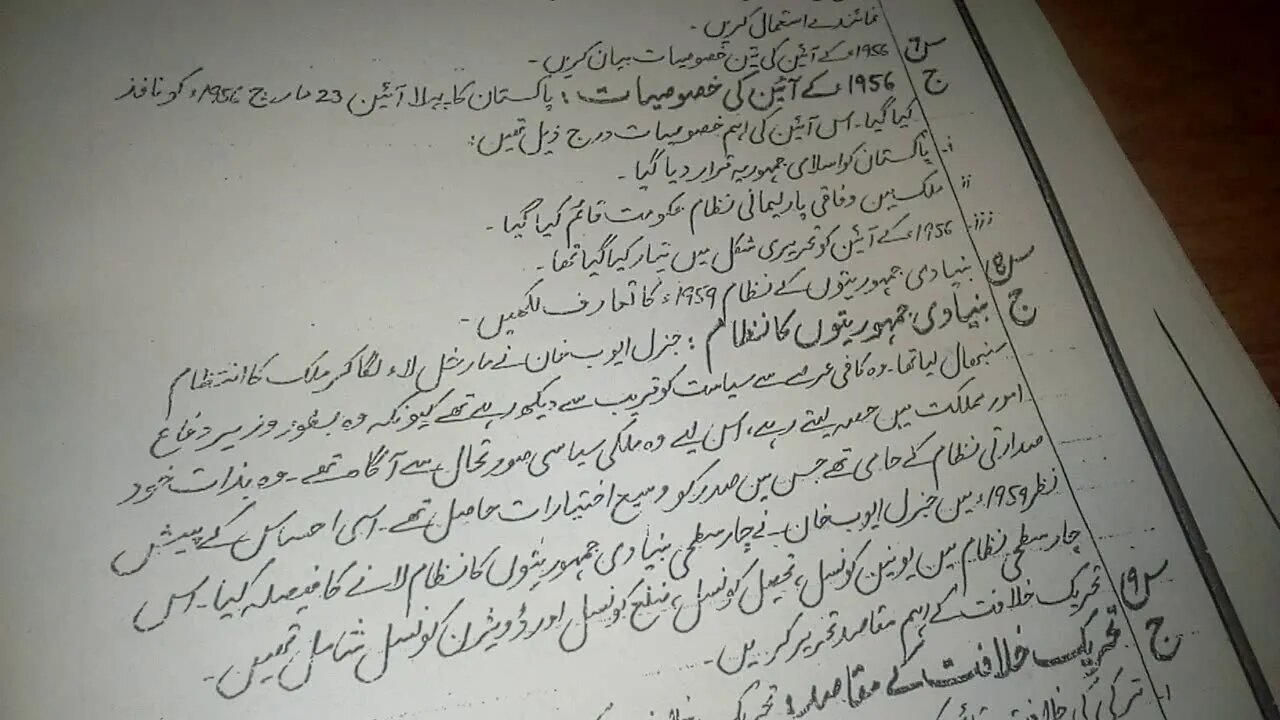 نمائندے استعمال کریں۔
س7 1956ء کے آئین کی تین خصوصیات بیان کریں۔
ج 1956ء کے آئین کی خصوصیات: پاکستان کا پہلا آئین 23 مارچ 1956ء کو نافذ
کیا گیا۔ اس آئین کی اہم خصوصیات درج ذیل تھیں:
i- پاکستان کو اسلامی جمہوریہ قرار دیا گیا۔
ii ملک میں وفاقی پارلیمانی نظام حکومت قائم کیا گیا۔
iii- 1956ء کے آئین کو تحریری شکل میں تیار کیا گیا تھا۔
س8 بنیادی جمہوریتوں کے نظام 1959ء کا تعارف لکھیں۔
ج بنیادی جمہوریتوں کا نظام: جنرل ایوب خان نے مارشل لاء لگا کر ملک کا انتظام
سنبھال لیا تھا۔ وہ کافی عرصے سے سیاست کو قریب سے دیکھ رہے تھے کیونکہ وہ بطور وزیر دفاع
امور مملکت میں حصہ لیتے رہے، اس لیے وہ ملکی سیاسی صورتحال سے آگاہ تھے۔ وہ بذات خود
صدارتی نظام کے حامی تھے جس میں صدر کو وسیع اختیارات حاصل تھے۔ اسی احساس کے پیش
نظر 1959ء میں جنرل ایوب خان نے چار سطحی بنیادی جمہوریتوں کا نظام لانے کا فیصلہ کیا۔ اس
چار سطحی نظام میں یونین کونسل، تحصیل کونسل، ضلع کونسل اور ڈویژن کونسل شامل تھیں۔
س9 تحریک خلافت کے اہم مقاصد تحریر کریں۔
ج تحریک خلافت کے مقاصد:
i- ترکی کی